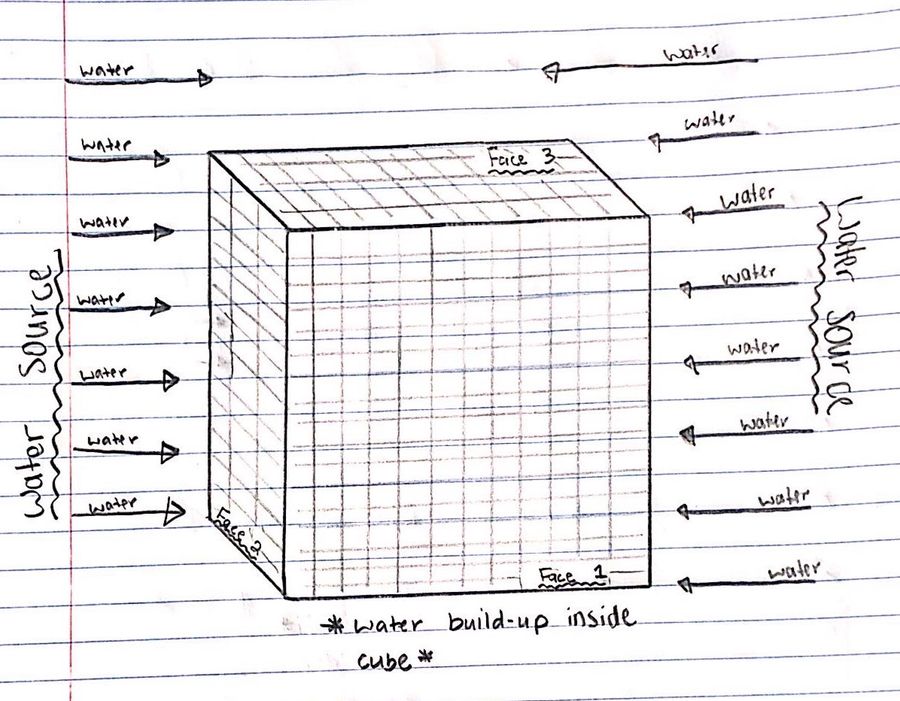 water
water
water
water
Face 3
water
water
water
water
water
water
water
water
water
water
water
water
water
water
water
Water Source
Water Source
Face 2
Face 1
*water build-up inside
cube*